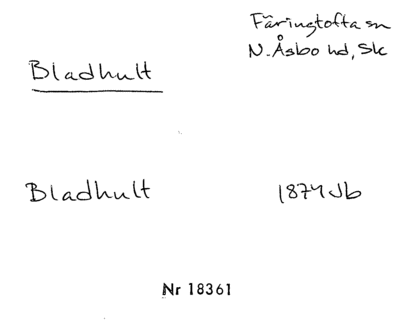 Färingtofta sn
N. Åsbo hd, Sk
Bladhult
Bladhult 1874 Jb
Nr 18361